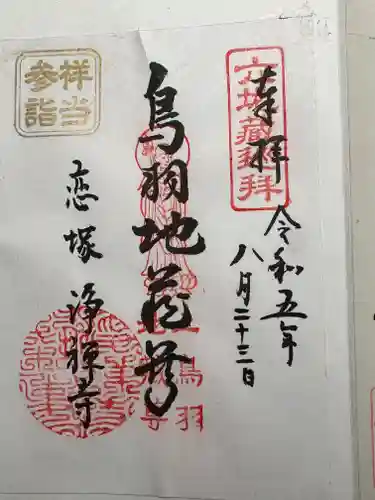 奉拝
令和五年
八月二十三日
六地蔵廻拝
鳥羽地蔵尊
恋塚 浄禅寺
祥当
参詣